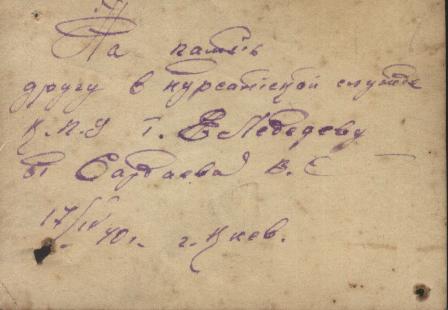 На память
другу в курсантской службе
К.П.У т. Е Лебедеву
от Сарбаева В. С
17/IV 40 г. г. Киев.